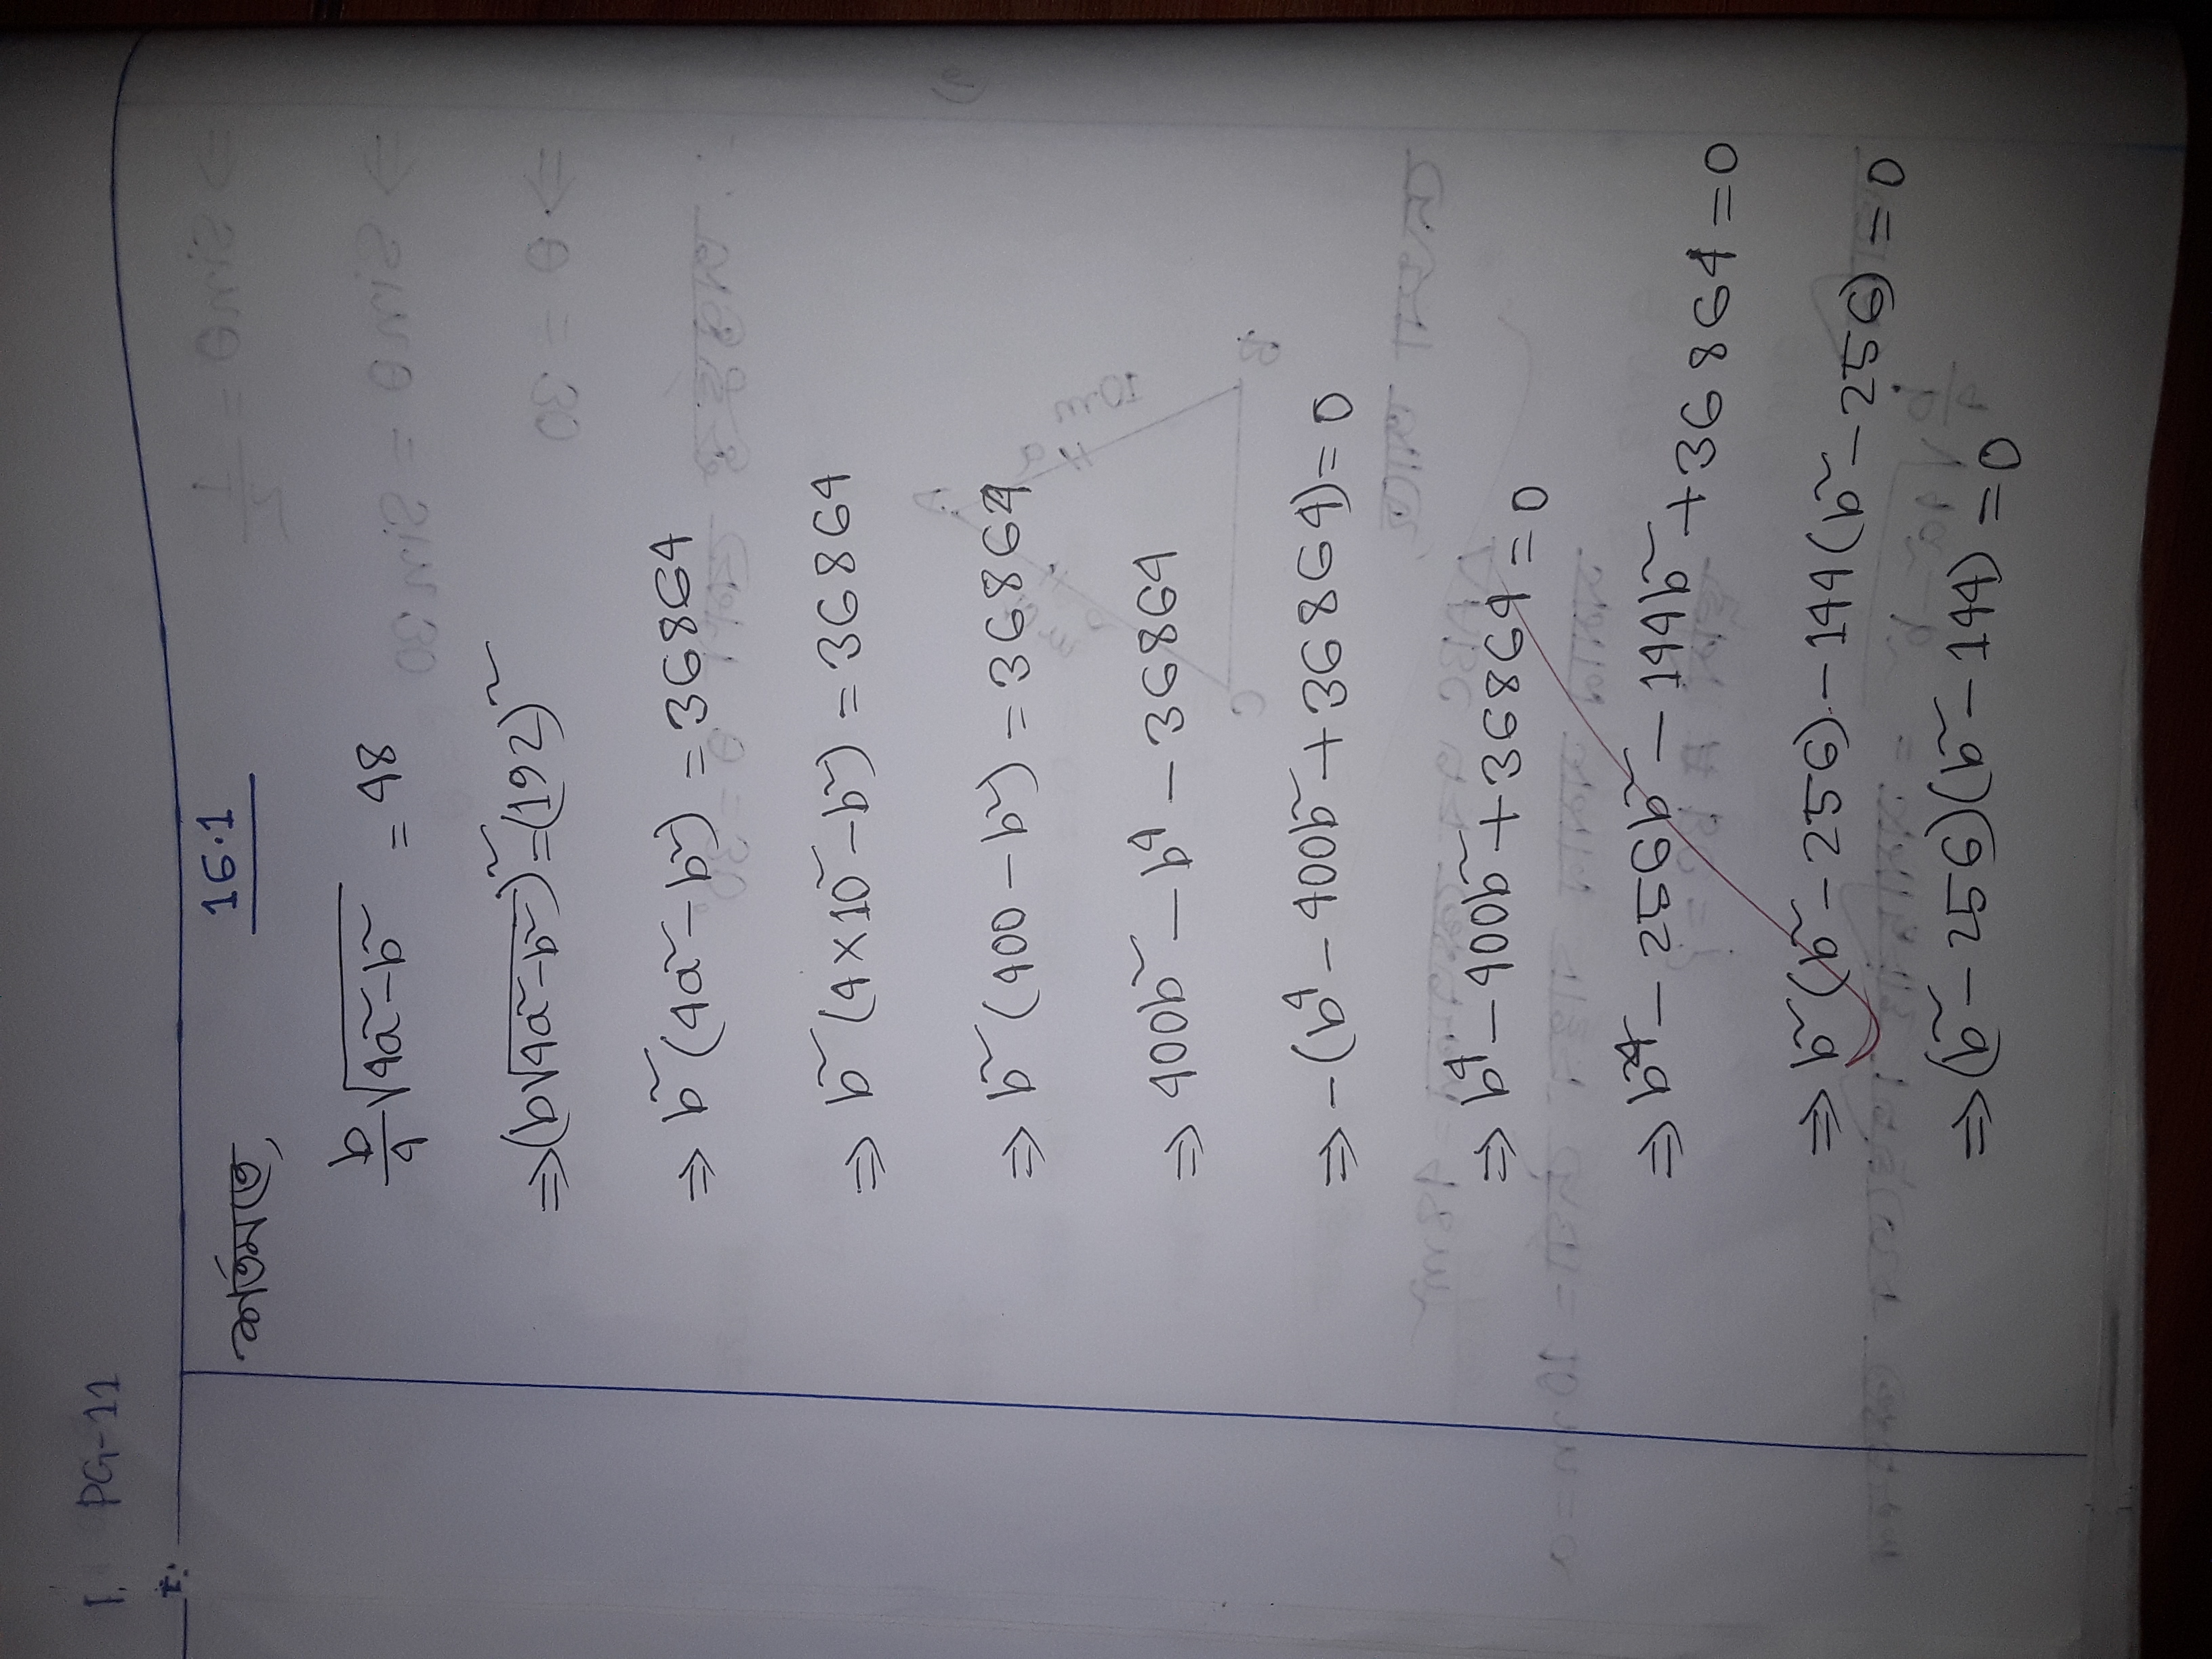 1. PG-11
16.1
শর্তমতে,
b/4 √(4a² - b²) = 48
⇒ (b√(4a² - b²))² = (192)²
⇒ b² (4a² - b²) = 36864
⇒ b² (4×10² - b²) = 36864
⇒ b² (400 - b²) = 36864
⇒ 400b² - b⁴ - 36864
⇒ -(b⁴ - 400b² + 36864) = 0
⇒ b⁴ - 400b² + 36864 = 0
⇒ b⁴ - 256b² - 144b² + 36864 = 0
⇒ b² (b² - 256) - 144 (b² - 256) = 0
⇒ (b² - 256)(b² - 144) = 0